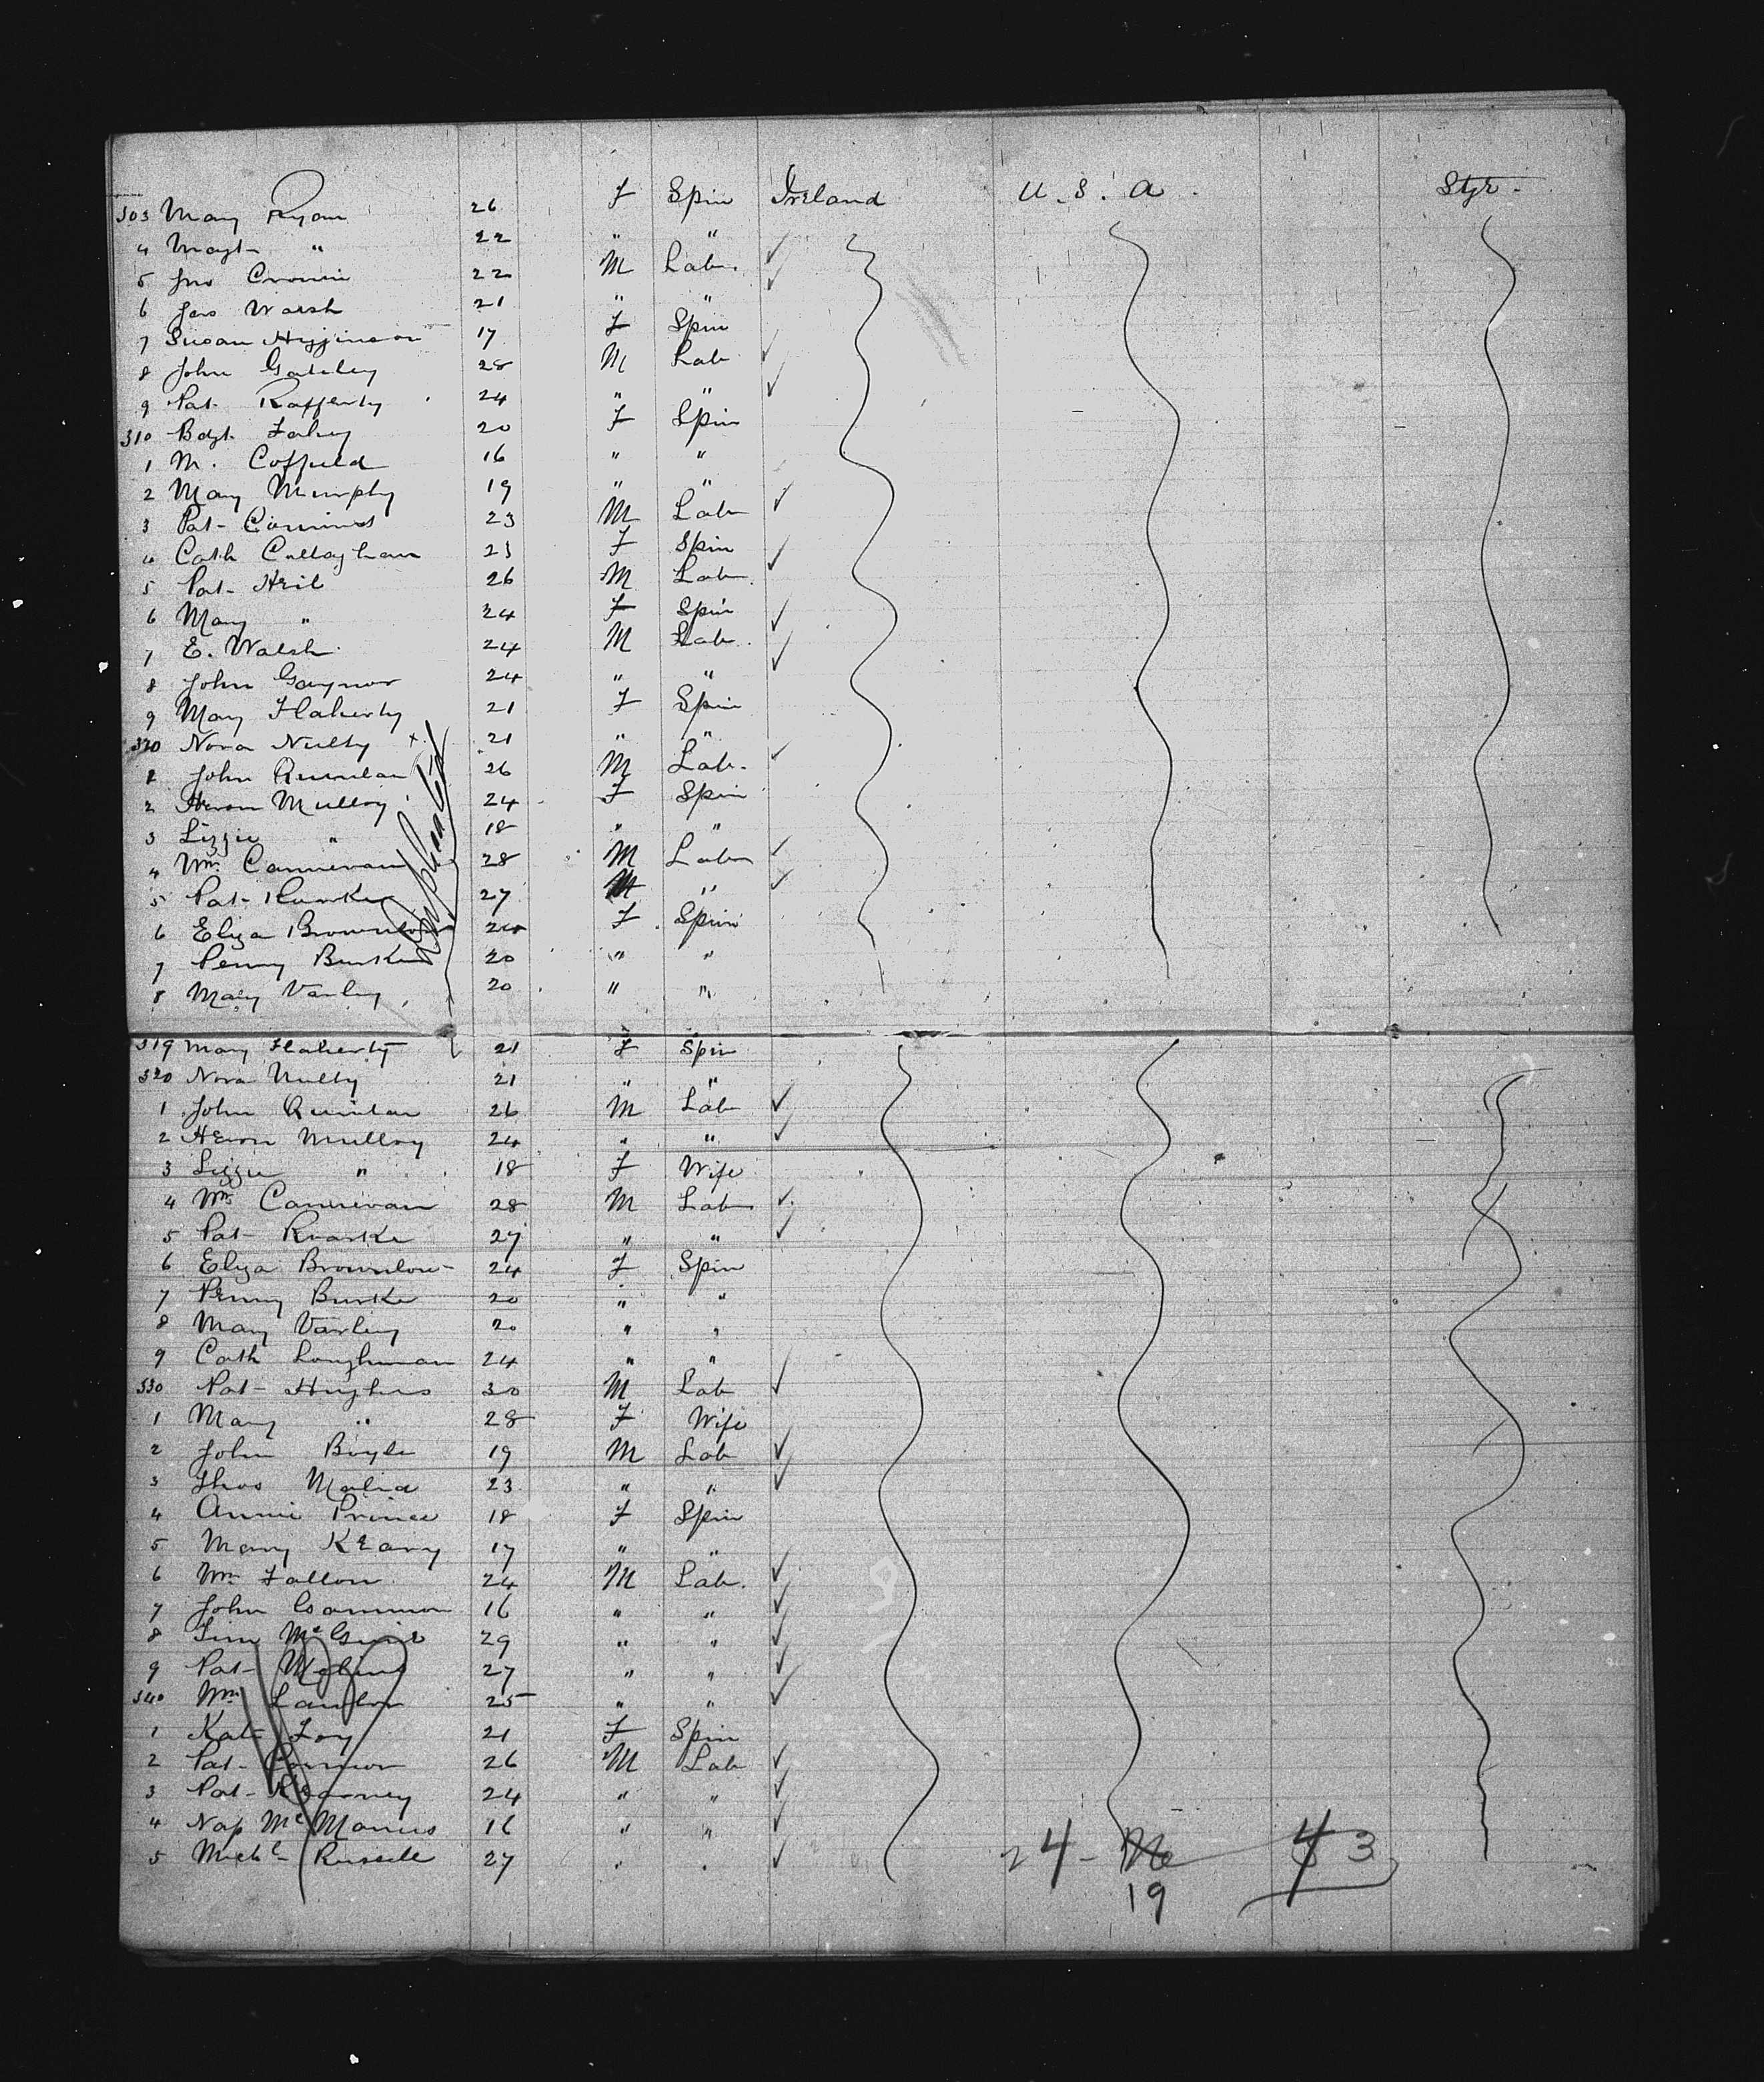 303 Mary Ryan 26 F Spin Ireland U.S.A. Stge.
4 Magt- " 22 " "
5 Jno Cronin 22 M Labr.
6 Jas Walsh 21 " "
7 Susan Higginson 17 F Spin
8 John Gateley 28 M Lab
9 Pat. Rafferty 24 " "
310 Bdgt. Fahey 20 F Spin
1 M. Coffield 16 " "
2 Mary Murphy 19 " "
3 Pat- 23 M Lab
4 Cath Callaghan 23 F Spin
5 Pat- Heil 26 M Lab.
6 Mary " 24 F Spin
7 E. Walsh. 24 M Lab.
8 John Gaynor 24 " "
9 Mary Flaherty 21 F Spin
320 Nora Nulty x 21 " "
1 John Quinlan 26 M Lab.
2 Heron Mulloy 24 F Spin
3 Lizzie " 18 " "
4 Wm. Cannevan 28 M Lab
5 Pat- Ruarke 27 M "
6 Eliza Brownlow 24 F Spin
7 Penny Burke 20 " "
8 Mary Varley 20 " "
Duplicated
319 Mary Flaherty 21 F Spin
320 Nora Nulty 21 " "
1 John Quinlan 26 M Lab
2 Heron Mulloy 24 " "
3 Lizzie " 18 F Wife
4 Wm Cannevan 28 M Lab
5 Pat- Ruarke 27 " "
6 Eliza Brownlow 24 F Spin
7 Penny Burke 20 " "
8 Mary Varley 20 " "
9 Cath Loughman 24 " "
330 Pat- Hughes 30 M Lab
1 Mary " 28 F Wife
2 John Boyle 19 M Lab
3 Thos Malia 23 " "
4 Annie Prince 18 F Spin
5 Mary Keary 17 " "
6 Wm Fallon 24 M Lab.
7 John Gammon 16 " "
8 Mc Guire 29 " "
9 Pat- 27 " "
340 Wm. Lawlor 25 " "
1 Kate Foy 21 F Spin
2 Pat- Connor 26 M Lab
3 Pat- Kearney 24 " "
4 Nap McManus 16 " "
5 Michl- Russell 27 " "
24- 43
19